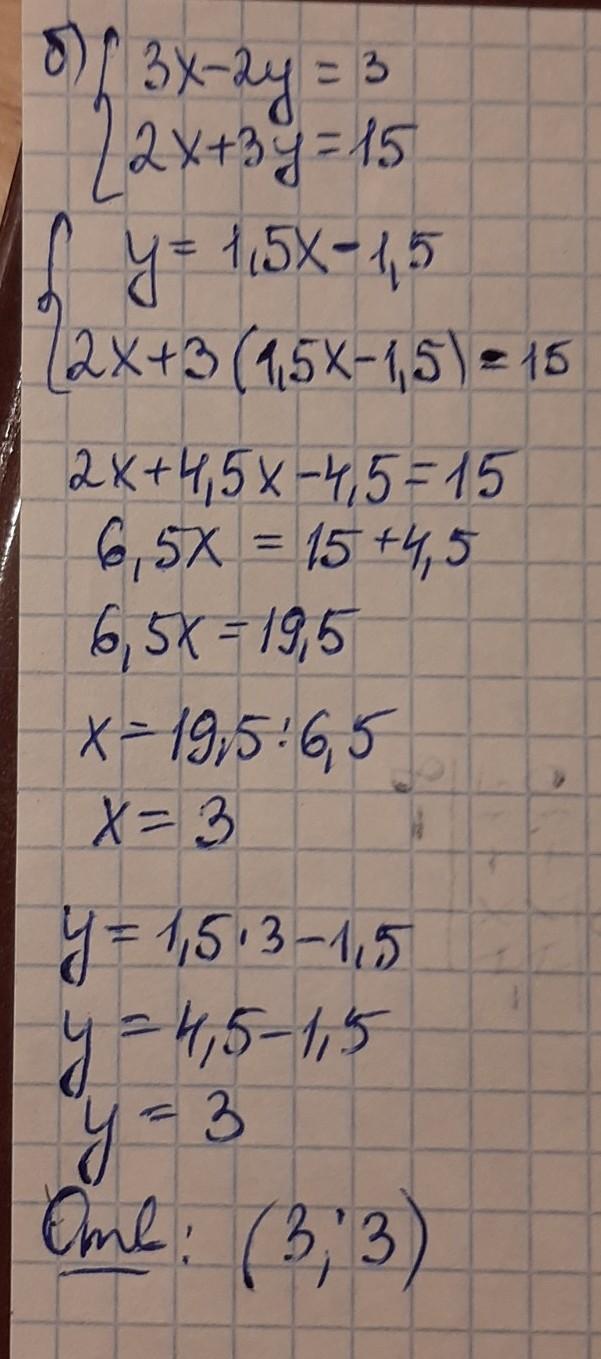 б) { 3x-2y = 3
2x+3y=15
{ y = 1,5x-1,5
2x+3(1,5x-1,5)=15
2x+4,5x-4,5=15
6,5x = 15+4,5
6,5x=19,5
x=19,5:6,5
x= 3
y=1,5·3-1,5
y=4,5-1,5
y = 3
Отв: (3; 3)